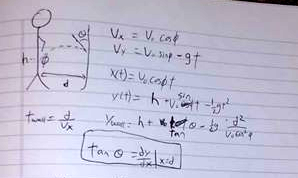 Vx = V₀ cosϕ
Vy = V₀ sinϕ - gt
x(t) = V₀ cosϕ t
y(t) = h + V₀ sin t - ½gt²
θ
h
ϕ
d
t wall = d/Vx
Ywall = h + tan θ - ½g · d²/V₀²cos²φ
tan θ = dy/dx | x=d